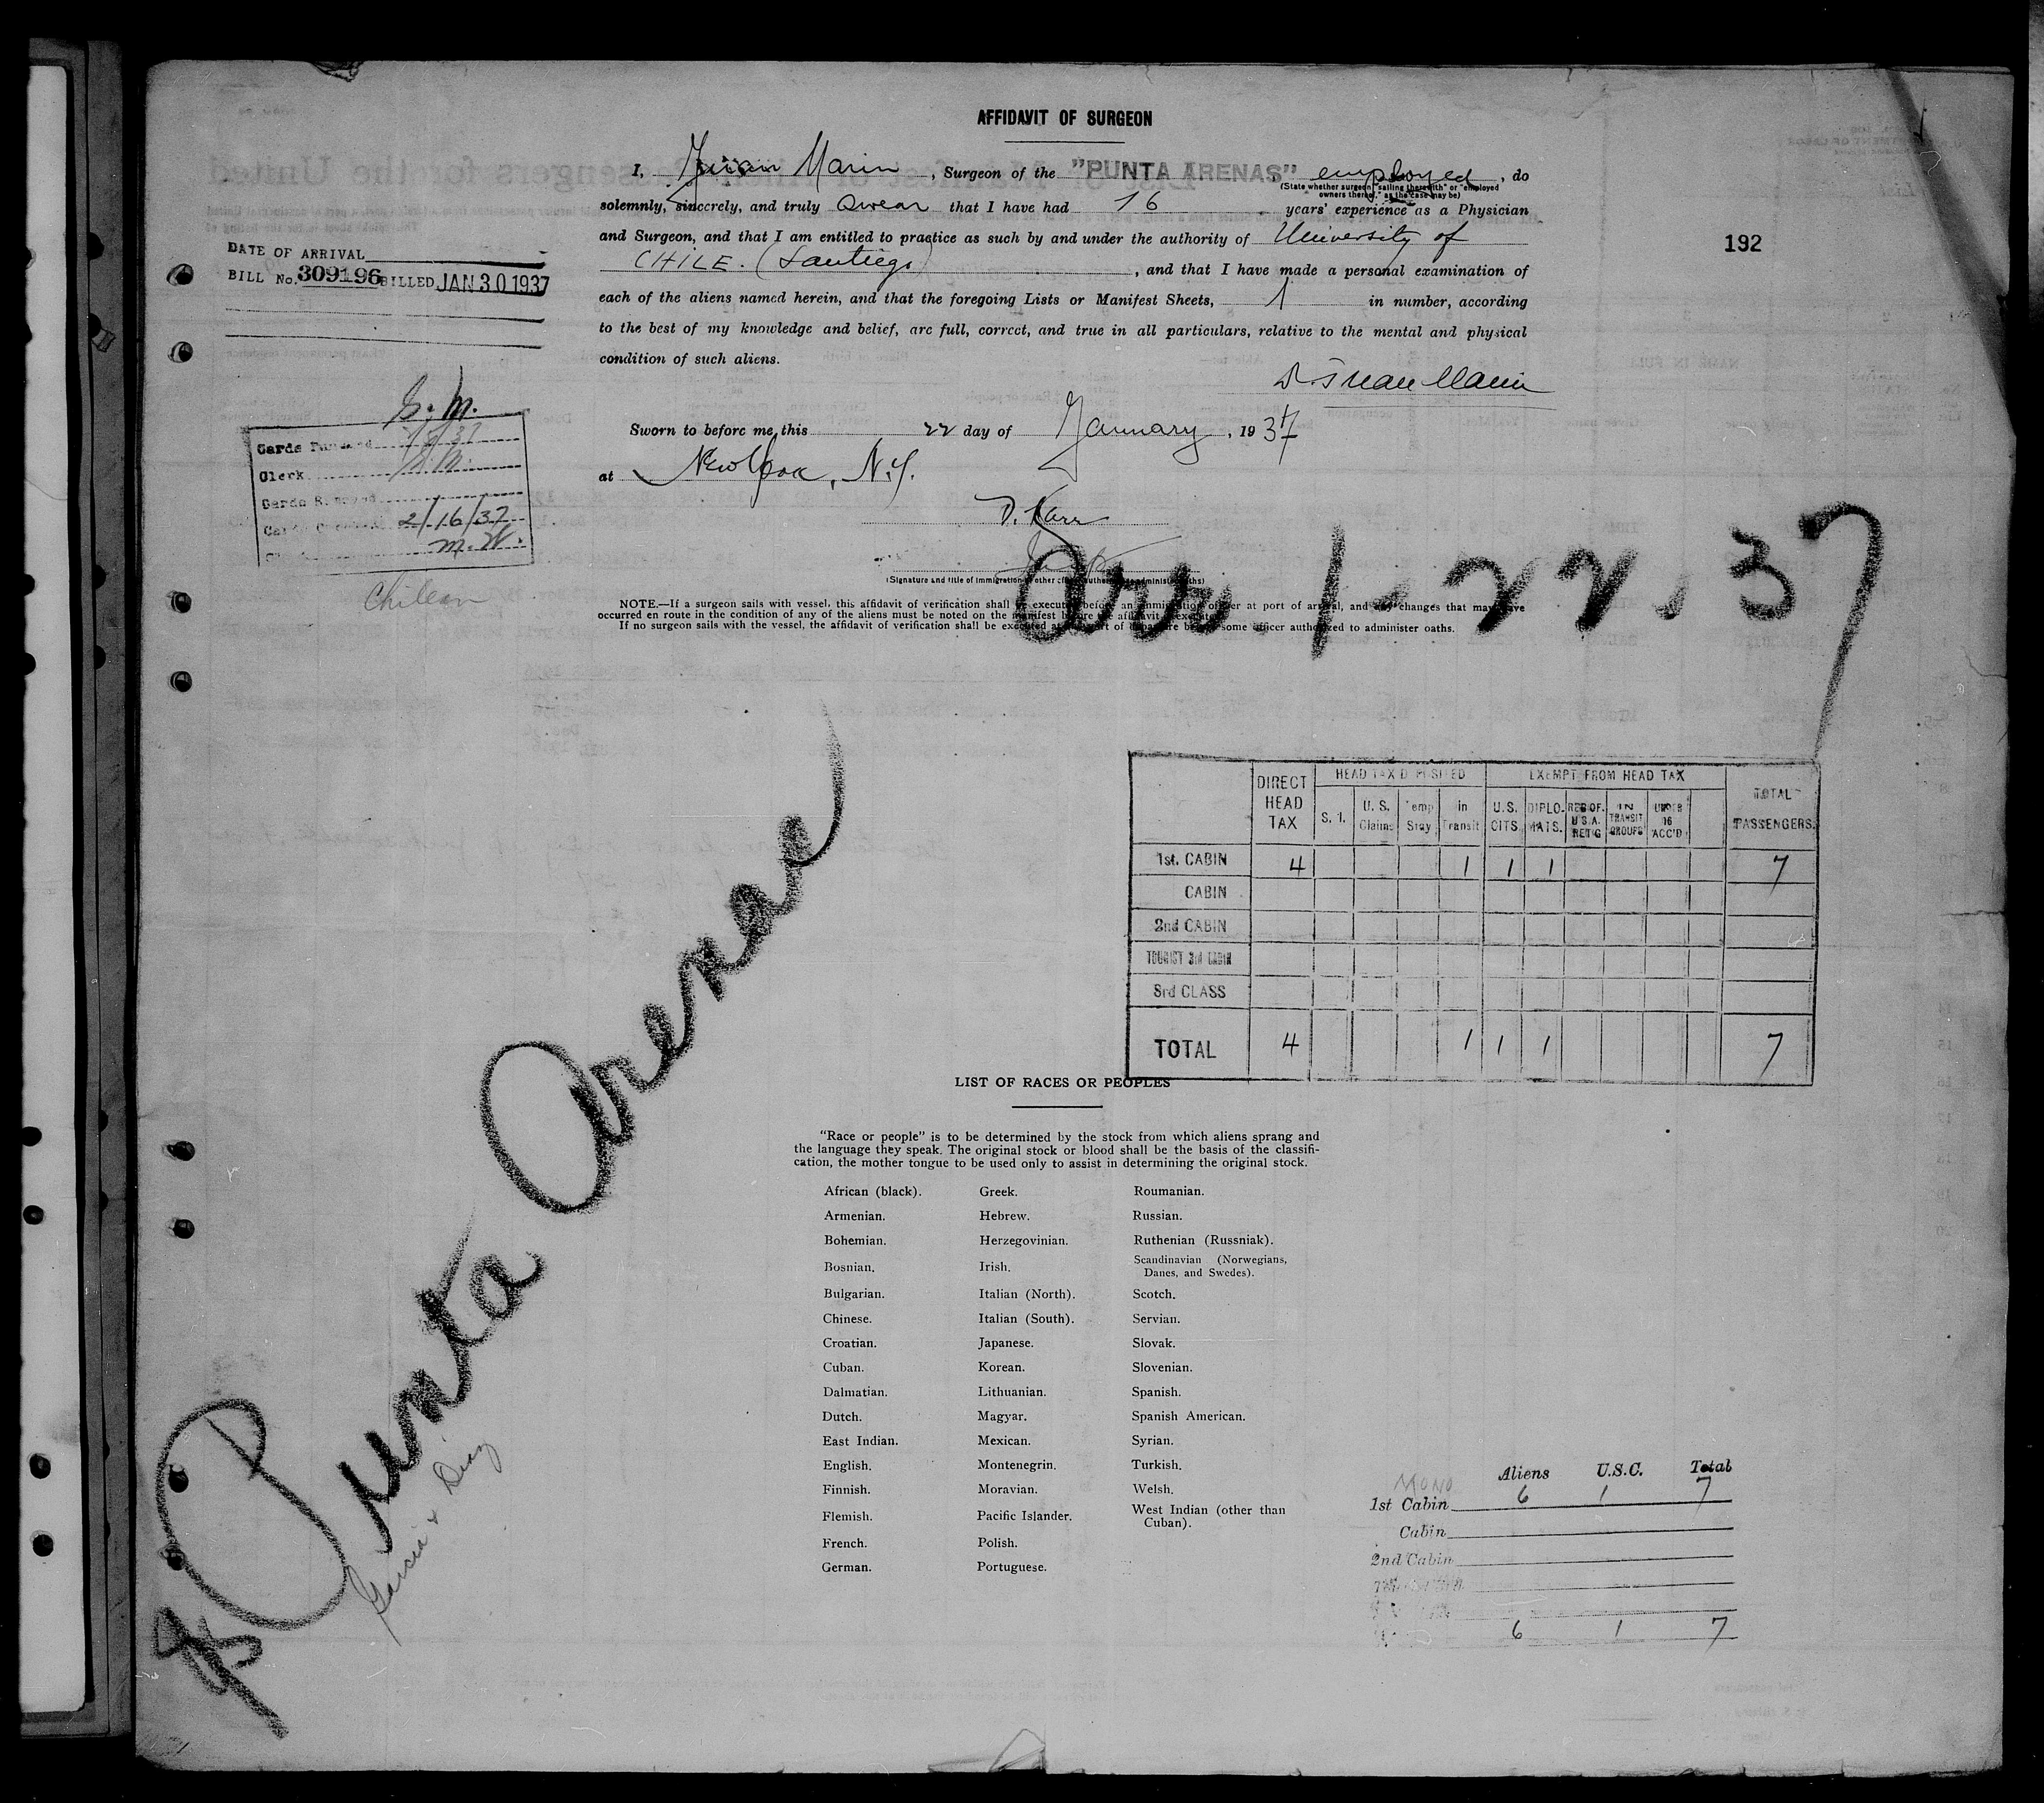 AFFIDAVIT OF SURGEON
I, Juan Marin, Surgeon of the "PUNTA ARENAS", employed, do
(State whether surgeon "sailing therewith" or "employed
owners thereof," as the case may be)
solemnly, sincerely, and truly swear that I have had 16 years' experience as a Physician
and Surgeon, and that I am entitled to practice as such by and under the authority of University of
CHILE. (Santiago), and that I have made a personal examination of
each of the aliens named herein, and that the foregoing Lists or Manifest Sheets, 1 in number, according
to the best of my knowledge and belief, are full, correct, and true in all particulars, relative to the mental and physical
condition of such aliens.
Dr. Juan Marin
Sworn to before me this 22 day of January, 1937
at New York, N.Y.
D. Karr
(Signature and title of immigration or other officer authorized to administer oaths)
NOTE.—If a surgeon sails with vessel, this affidavit of verification shall be executed before an immigration officer at port of arrival, and any changes that may have
occurred en route in the condition of any of the aliens must be noted on the manifest before the affidavit is executed.
If no surgeon sails with the vessel, the affidavit of verification shall be executed at the port of departure before some officer authorized to administer oaths.
192
DATE OF ARRIVAL
BILL No. 309196 BILLED JAN 30 1937
S. M.
Cards
Clerk S. M.
Cards
2/16/37
M. W.
Chilean
Arr. 1.22.37
Punta Arenas
Garcia & Diaz
DIRECT HEAD TAX
HEAD TAX DEPOSITED
EXEMPT FROM HEAD TAX
TOTAL PASSENGERS.
S. I. U. S. Claims Temp Stay in Transit U.S. CITS DIPLO-MATS. RES OF. U.S.A. RET'G IN TRANSIT GROUPS UNDER 16 ACC'D
1st. CABIN 4 1 1 1 7
CABIN
2nd CABIN
TOURIST 3rd CABIN
3rd CLASS
TOTAL 4 1 1 1 7
LIST OF RACES OR PEOPLES
"Race or people" is to be determined by the stock from which aliens sprang and
the language they speak. The original stock or blood shall be the basis of the classifi-
cation, the mother tongue to be used only to assist in determining the original stock.
African (black). Greek. Roumanian.
Armenian. Hebrew. Russian.
Bohemian. Herzegovinian. Ruthenian (Russniak).
Bosnian. Irish. Scandinavian (Norwegians,
Danes, and Swedes).
Bulgarian. Italian (North). Scotch.
Chinese. Italian (South). Servian.
Croatian. Japanese. Slovak.
Cuban. Korean. Slovenian.
Dalmatian. Lithuanian. Spanish.
Dutch. Magyar. Spanish American.
East Indian. Mexican. Syrian.
English. Montenegrin. Turkish.
Finnish. Moravian. Welsh.
Flemish. Pacific Islander. West Indian (other than
Cuban).
French. Polish.
German. Portuguese.
Aliens U.S.C. Total
MONO
1st Cabin 6 1 7
Cabin
2nd Cabin
6 1 7